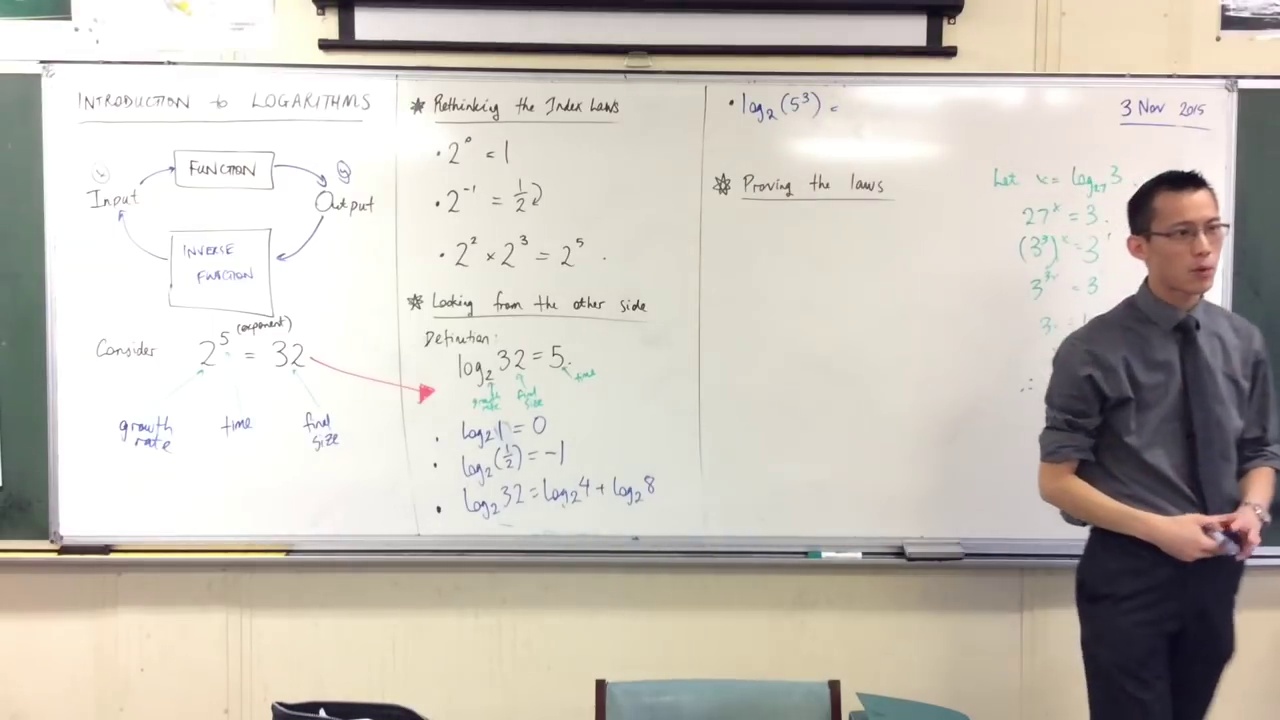 INTRODUCTION to LOGARITHMS
FUNCTION
Input
Output
INVERSE
FUNCTION
Consider 2^5 = 32
(exponent)
growth
rate
time
final
size
Rethinking the Index Laws
· 2^0 = 1
· 2^-1 = 1/2
· 2^2 × 2^3 = 2^5
Looking from the other side
Definition:
log_2 32 = 5.
growth
rate
final
size
time
· log_2 1 = 0
· log_2 (1/2) = -1
· log_2 32 = log_2 4 + log_2 8
· log_2 (5^3) =
Proving the laws
3 Nov 2015
Let x = log_27 3
27^x = 3
(3^3)^x = 3^1
3^3x = 3
∴